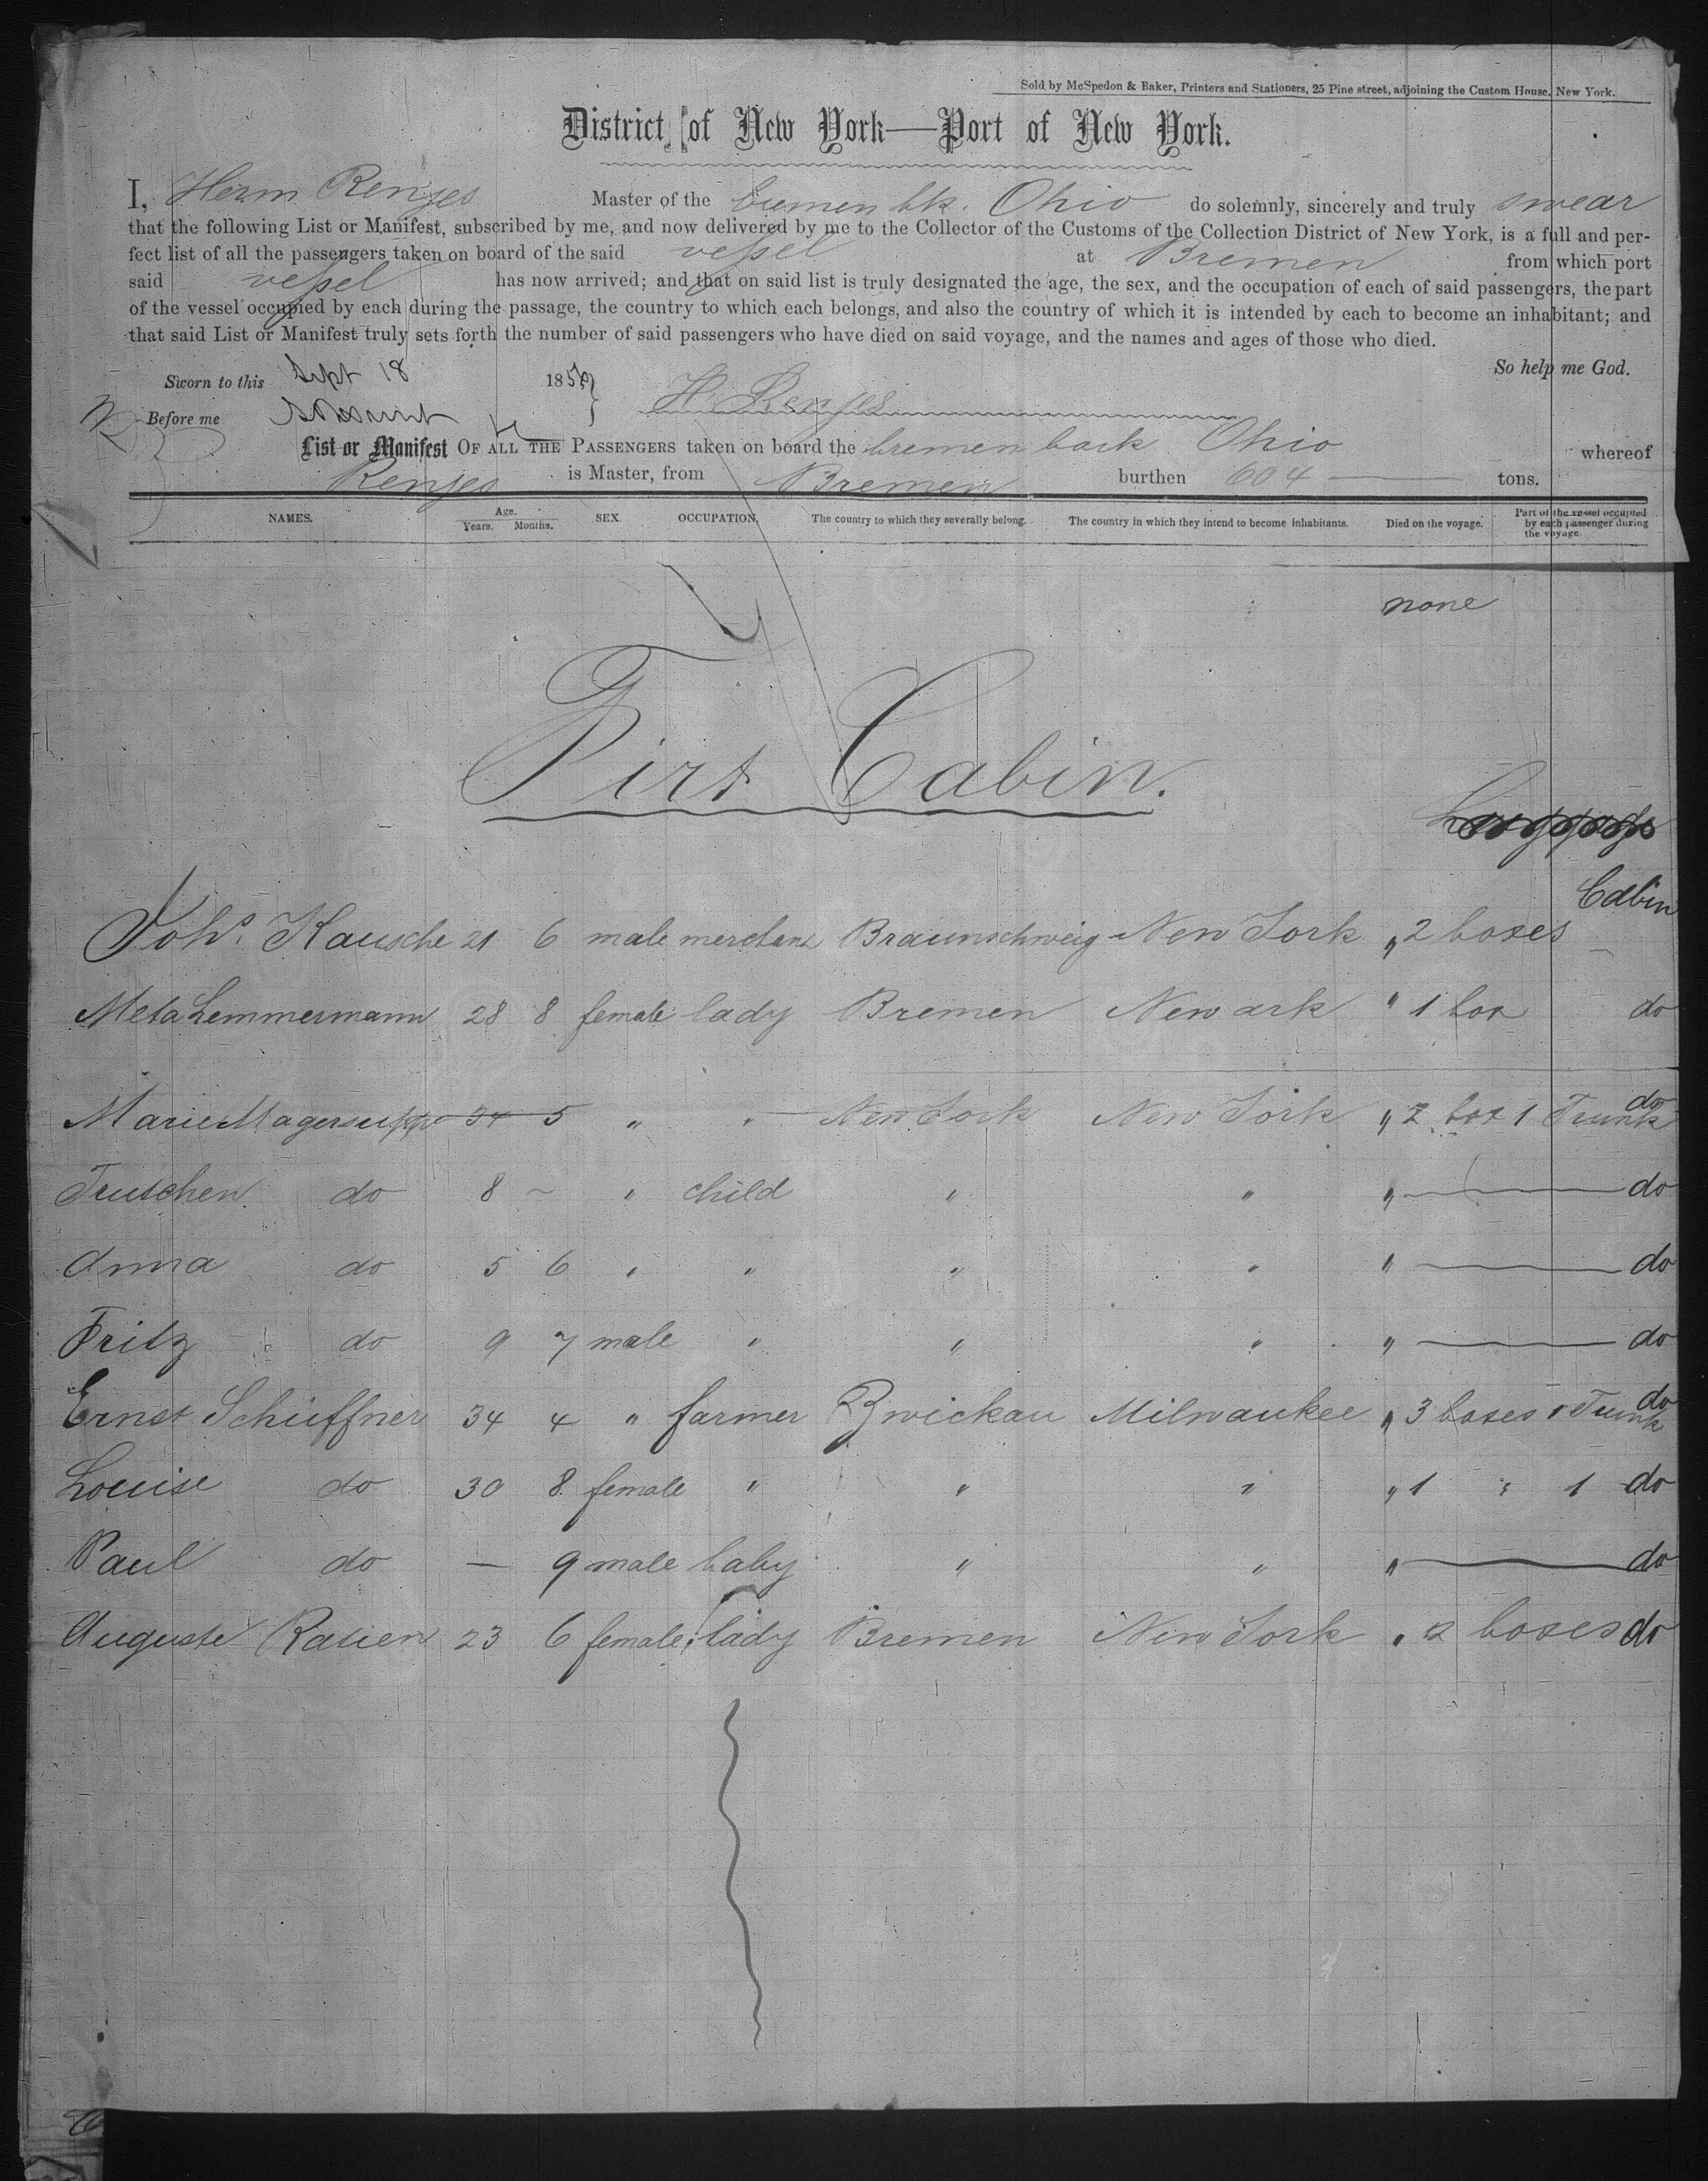 Sold by McSpedon & Baker, Printers and Stationers, 25 Pine street, adjoining the Custom House, New York.
District of New York—Port of New York.
I, Herm Renjes Master of the bremen bk. Ohio do solemnly, sincerely and truly swear
that the following List or Manifest, subscribed by me, and now delivered by me to the Collector of the Customs of the Collection District of New York, is a full and per-
fect list of all the passengers taken on board of the said vessel at Bremen from which port
said vessel has now arrived; and that on said list is truly designated the age, the sex, and the occupation of each of said passengers, the part
of the vessel occupied by each during the passage, the country to which each belongs, and also the country of which it is intended by each to become an inhabitant; and
that said List or Manifest truly sets forth the number of said passengers who have died on said voyage, and the names and ages of those who died.
So help me God.
Sworn to this Sept 18 185
Before me H. Renjes
List or Manifest OF ALL THE PASSENGERS taken on board the bremen bark Ohio whereof
Renjes is Master, from Bremen burthen 604 tons.
NAMES. Age. Years. Months. SEX. OCCUPATION. The country to which they severally belong. The country in which they intend to become inhabitants. Died on the voyage. Part of the vessel occupied by each passenger during the voyage.
none
First Cabin.
Cabin
Johs. Kausche 21 6 male merchant Braunschweig New York " 2 boxes
Meta Lemmermann 28 8 female lady Bremen Newark " 1 box do
Marie Magersuppe 34 5 " " New York New York " 2 box 1 Trunk do
Truschen do 8 – " child " " " — do
Anna do 5 6 " " " " " — do
Fritz do 9 7 male " " " " — do
Ernst Schieffner 34 4 " farmer Zwickau Milwaukee " 3 boxes 1 Trunk do
Louise do 30 8 female " " " " 1 " 1 do
Paul do — 9 male baby " " " — do
Auguste Rasien 23 6 female lady Bremen New York " 2 boxes do